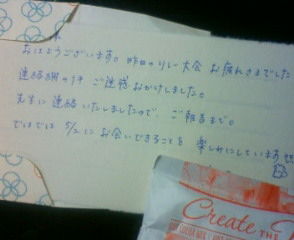 おはようございます。昨日のリレー大会 お疲れさまでした
連絡網の件 ご迷惑おかけしました。
先生に連絡いたしましたので、ご報告まで。
ではでは 5/2に お会いできることを 楽しみにしています
Create THE